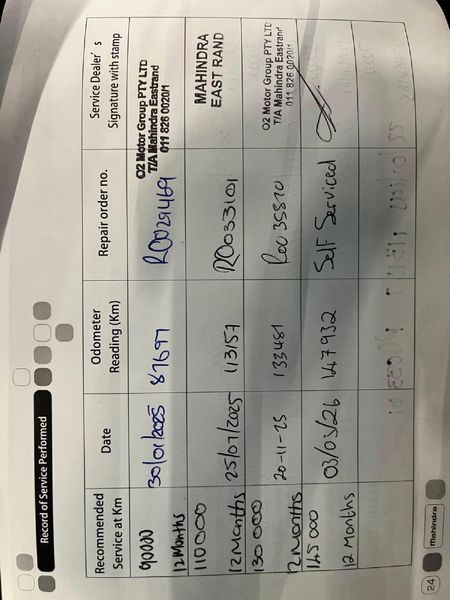 Record of Service Performed
Recommended Service at Km
Date
Odometer Reading (Km)
Repair order no.
Service Dealer's Signature with stamp
90000
12 Months
30/01/2025
87697
RO029469
O2 Motor Group PTY LTD
T/A Mahindra Eastrand
011 826 0020/1
110 000
12 Months
25/07/2025
113157
RO033101
MAHINDRA
EAST RAND
130 000
12 Months
20-11-25
133481
Roo 35870
O2 Motor Group PTY LTD
T/A Mahindra Eastrand
011 826 0020/1
145 000
12 Months
03/03/26
147932
Self Serviced
24
mahindra